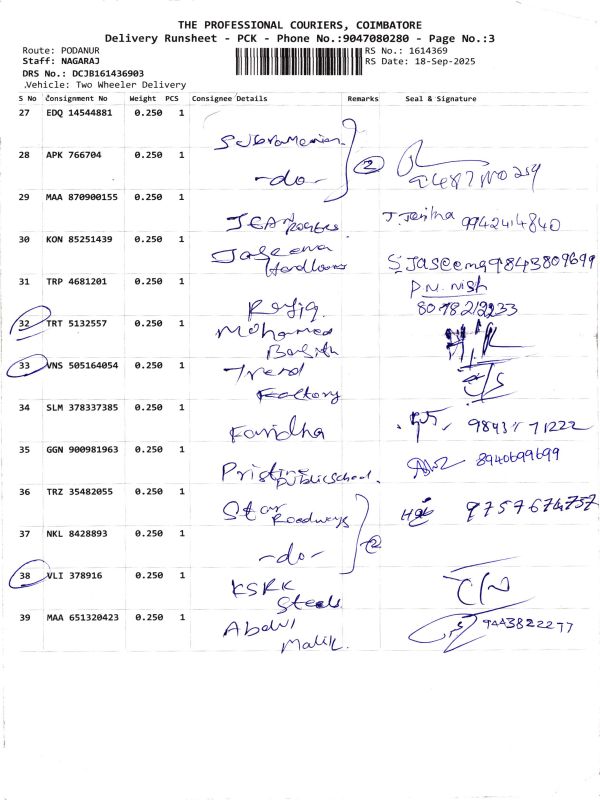 THE PROFESSIONAL COURIERS, COIMBATORE
Delivery Runsheet - PCK - Phone No.:9047080280 - Page No.:3
Route: PODANUR RS No.: 1614369
Staff: NAGARAJ RS Date: 18-Sep-2025
DRS No.: DCJB161436903
Vehicle: Two Wheeler Delivery
S No Consignment No Weight PCS Consignee Details Remarks Seal & Signature
27 EDQ 14544881 0.250 1
Subramanian
28 APK 766704 0.250 1 2
-do-
29 MAA 870900155 0.250 1
9942414840
30 KON 85251439 0.250 1
Jaseema
Handlooms S Jaseema 9843809699
31 TRP 4681201 0.250 1
Rafiq
32 TRT 5132557 0.250 1
Mohamed
Basith
33 VNS 505164054 0.250 1
Trend
Factory
34 SLM 378337385 0.250 1
Faridha
35 GGN 900981963 0.250 1 8940699699
Pristine
Public School.
36 TRZ 35482055 0.250 1
Star
Roadways
37 NKL 8428893 0.250 1 2
-do-
38 VLI 378916 0.250 1
KSRK C/N
Steels
39 MAA 651320423 0.250 1 9443822277
Abdul
Malik.